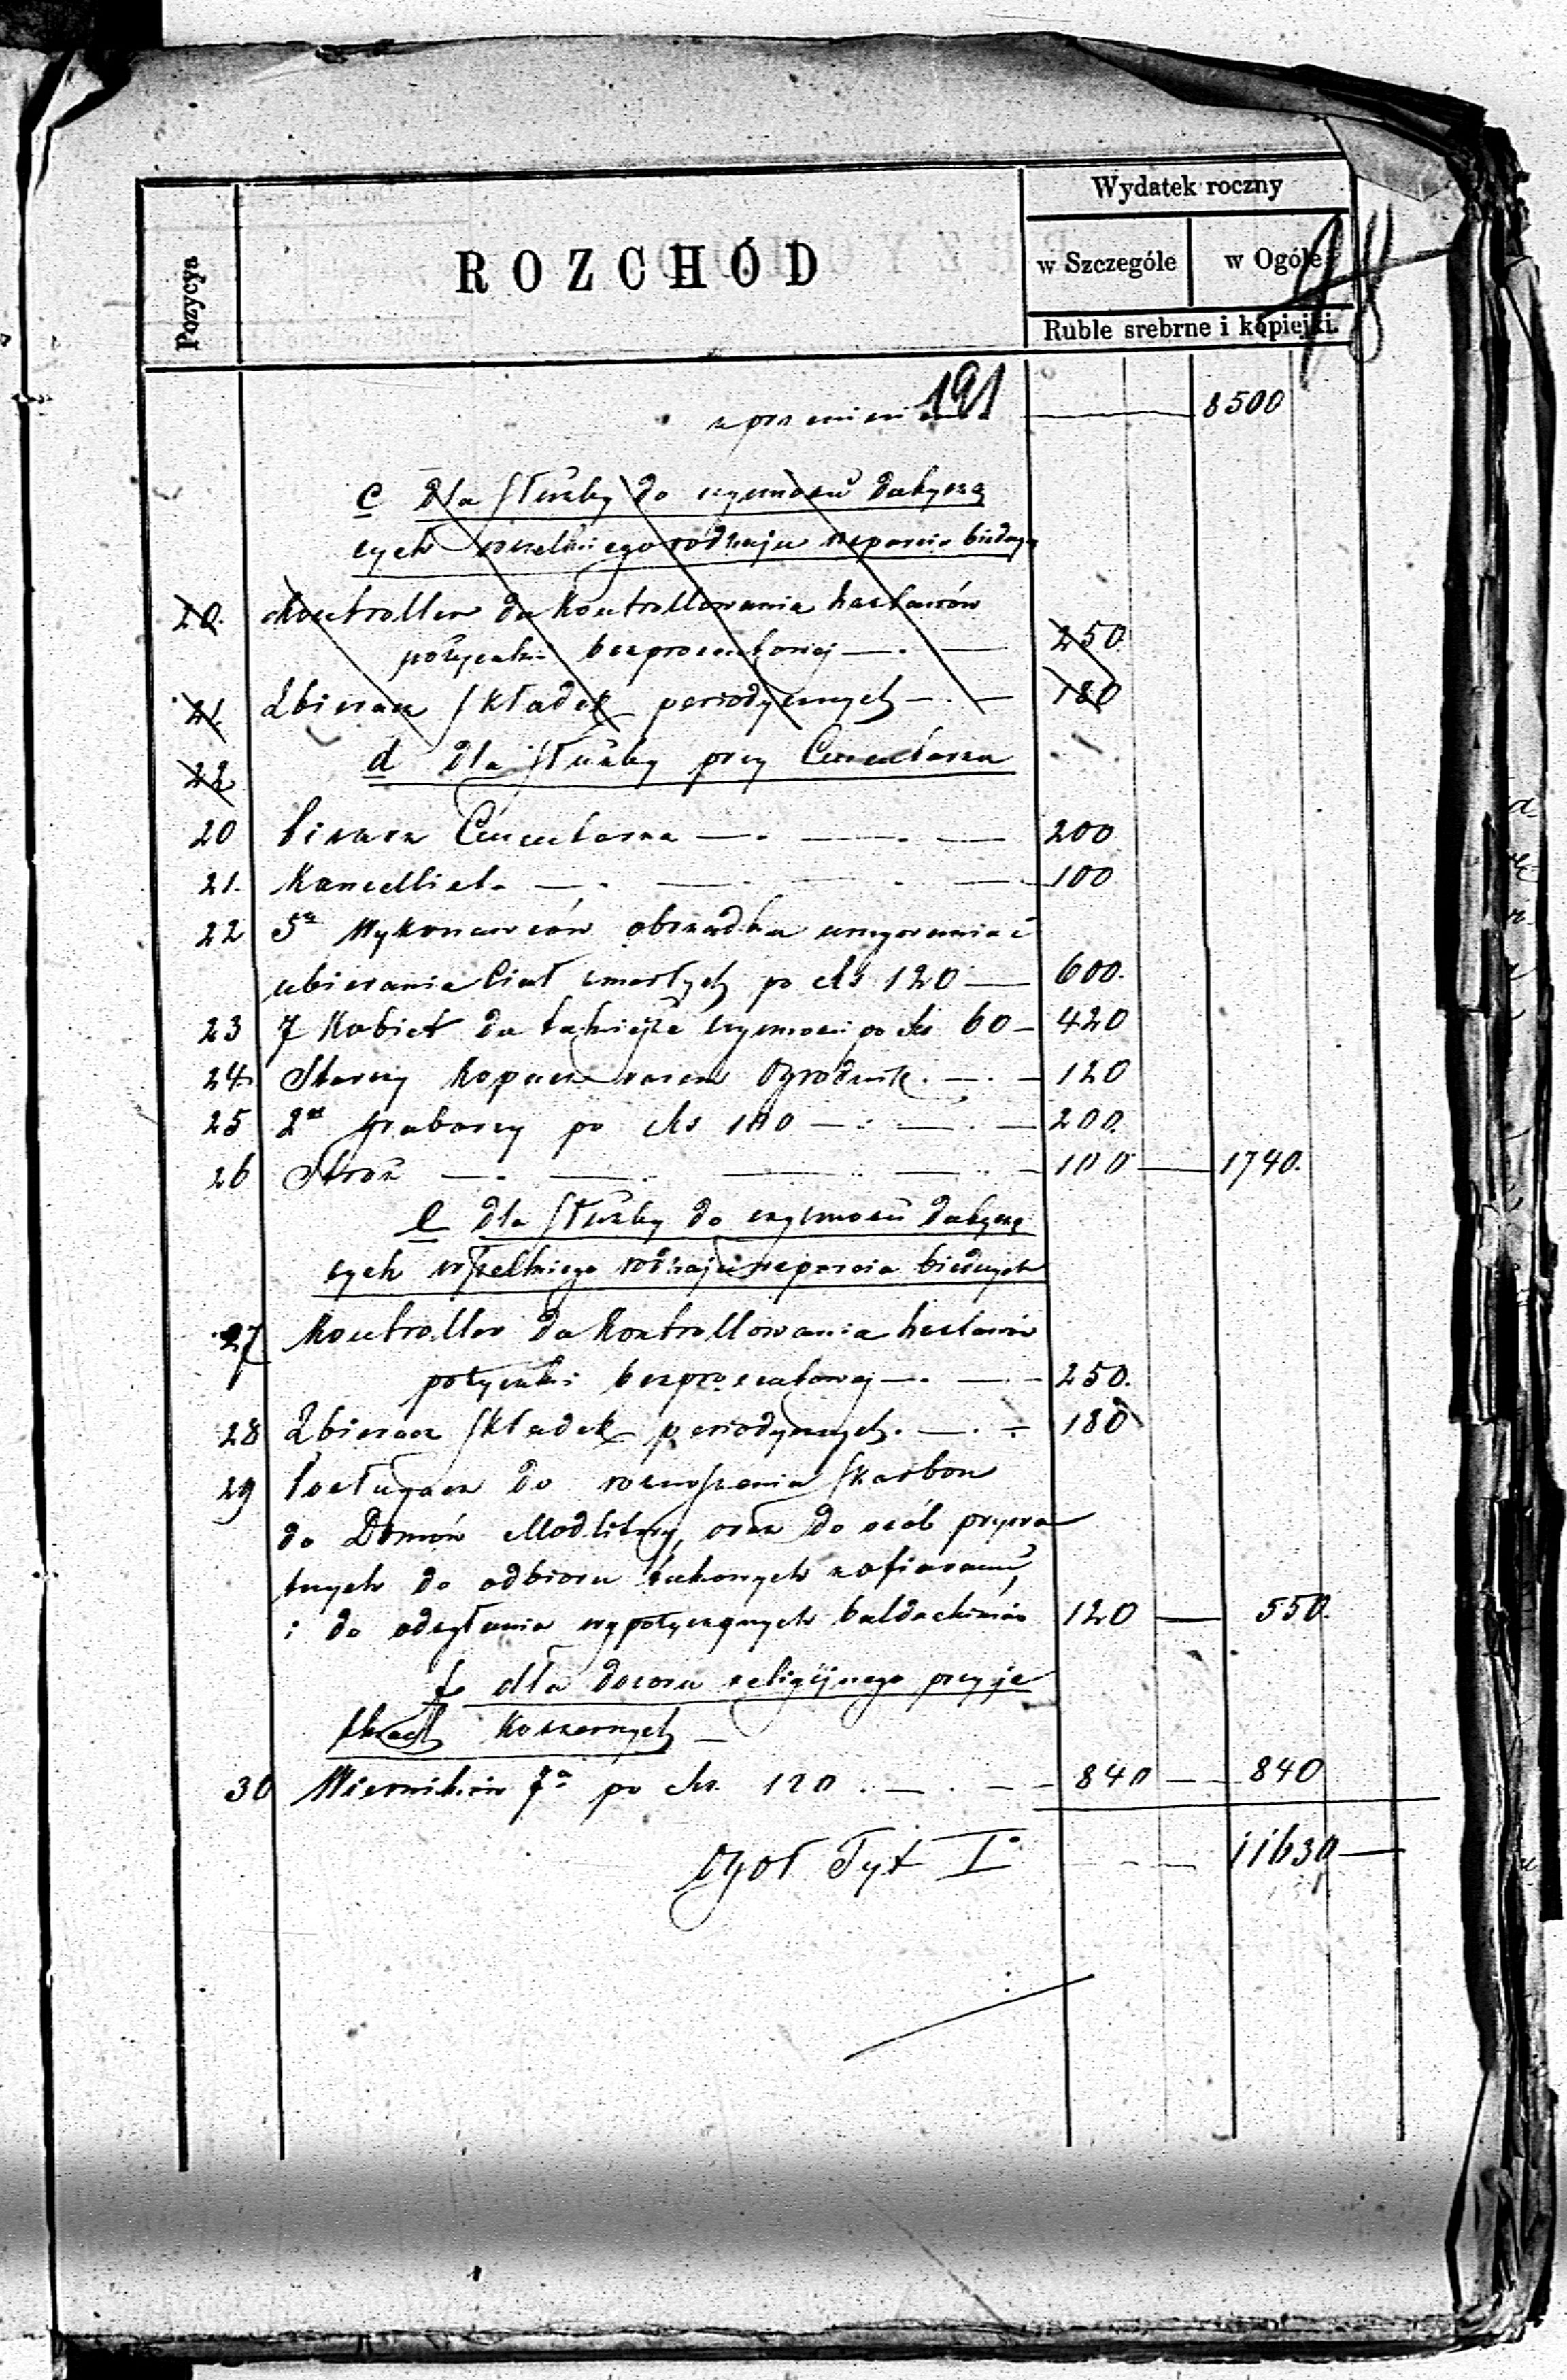 Wydatek roczny
Pozycya
ROZCHÓD
w Szczególe w Ogóle
Ruble srebrne i kopiejki.
191
z przeniesienia 8500
c Dla Służby do czynności dotyczą
cych wszelkiego rodzaju wsparcia biednych
20. Kontroller do kontrollowania zastawów
pożyczki bezprocentowej —.— 250
21. Zbieracz składek periodycznych —.— 180
22 d dla służby przy Cmentarzu
20 Pisarz Cmentarza —.— 200
21. Kancellista — 100
22 5u Wykonawców obrządku umywania i
ubierania Ciał zmarłych po Rs 120 — 600.
23 7 Kobiet do takiejże czynności po Rs 60 — 420
24 Starszy Kopacz razem Ogrodnik. —.— 120
25 2ch grabarzy po Rs 100 — 200.
26 Stróż —.— 100 — 1740.
e dla służby do czynności dotyczą
cych wszelkiego rodzaju wsparcia biednych
27 Kontroller do kontrollowania zastawów
pożyczki bezprocentowej —.— 250.
28 Zbieracz składek periodycznych. —.— 180
29 Posługacz do roznoszenia skarbon
do Domów Modlitwy, oraz do osób
do odbioru
i do odsyłania wypożyczanych baldachimów 120 — 550.
f dla dozoru religijnego przy ja
tkach Koszernych —
30 Wierników 7u po Rs. 120 . —.— 840 — 840
Ogół Tyt I° 11630 —